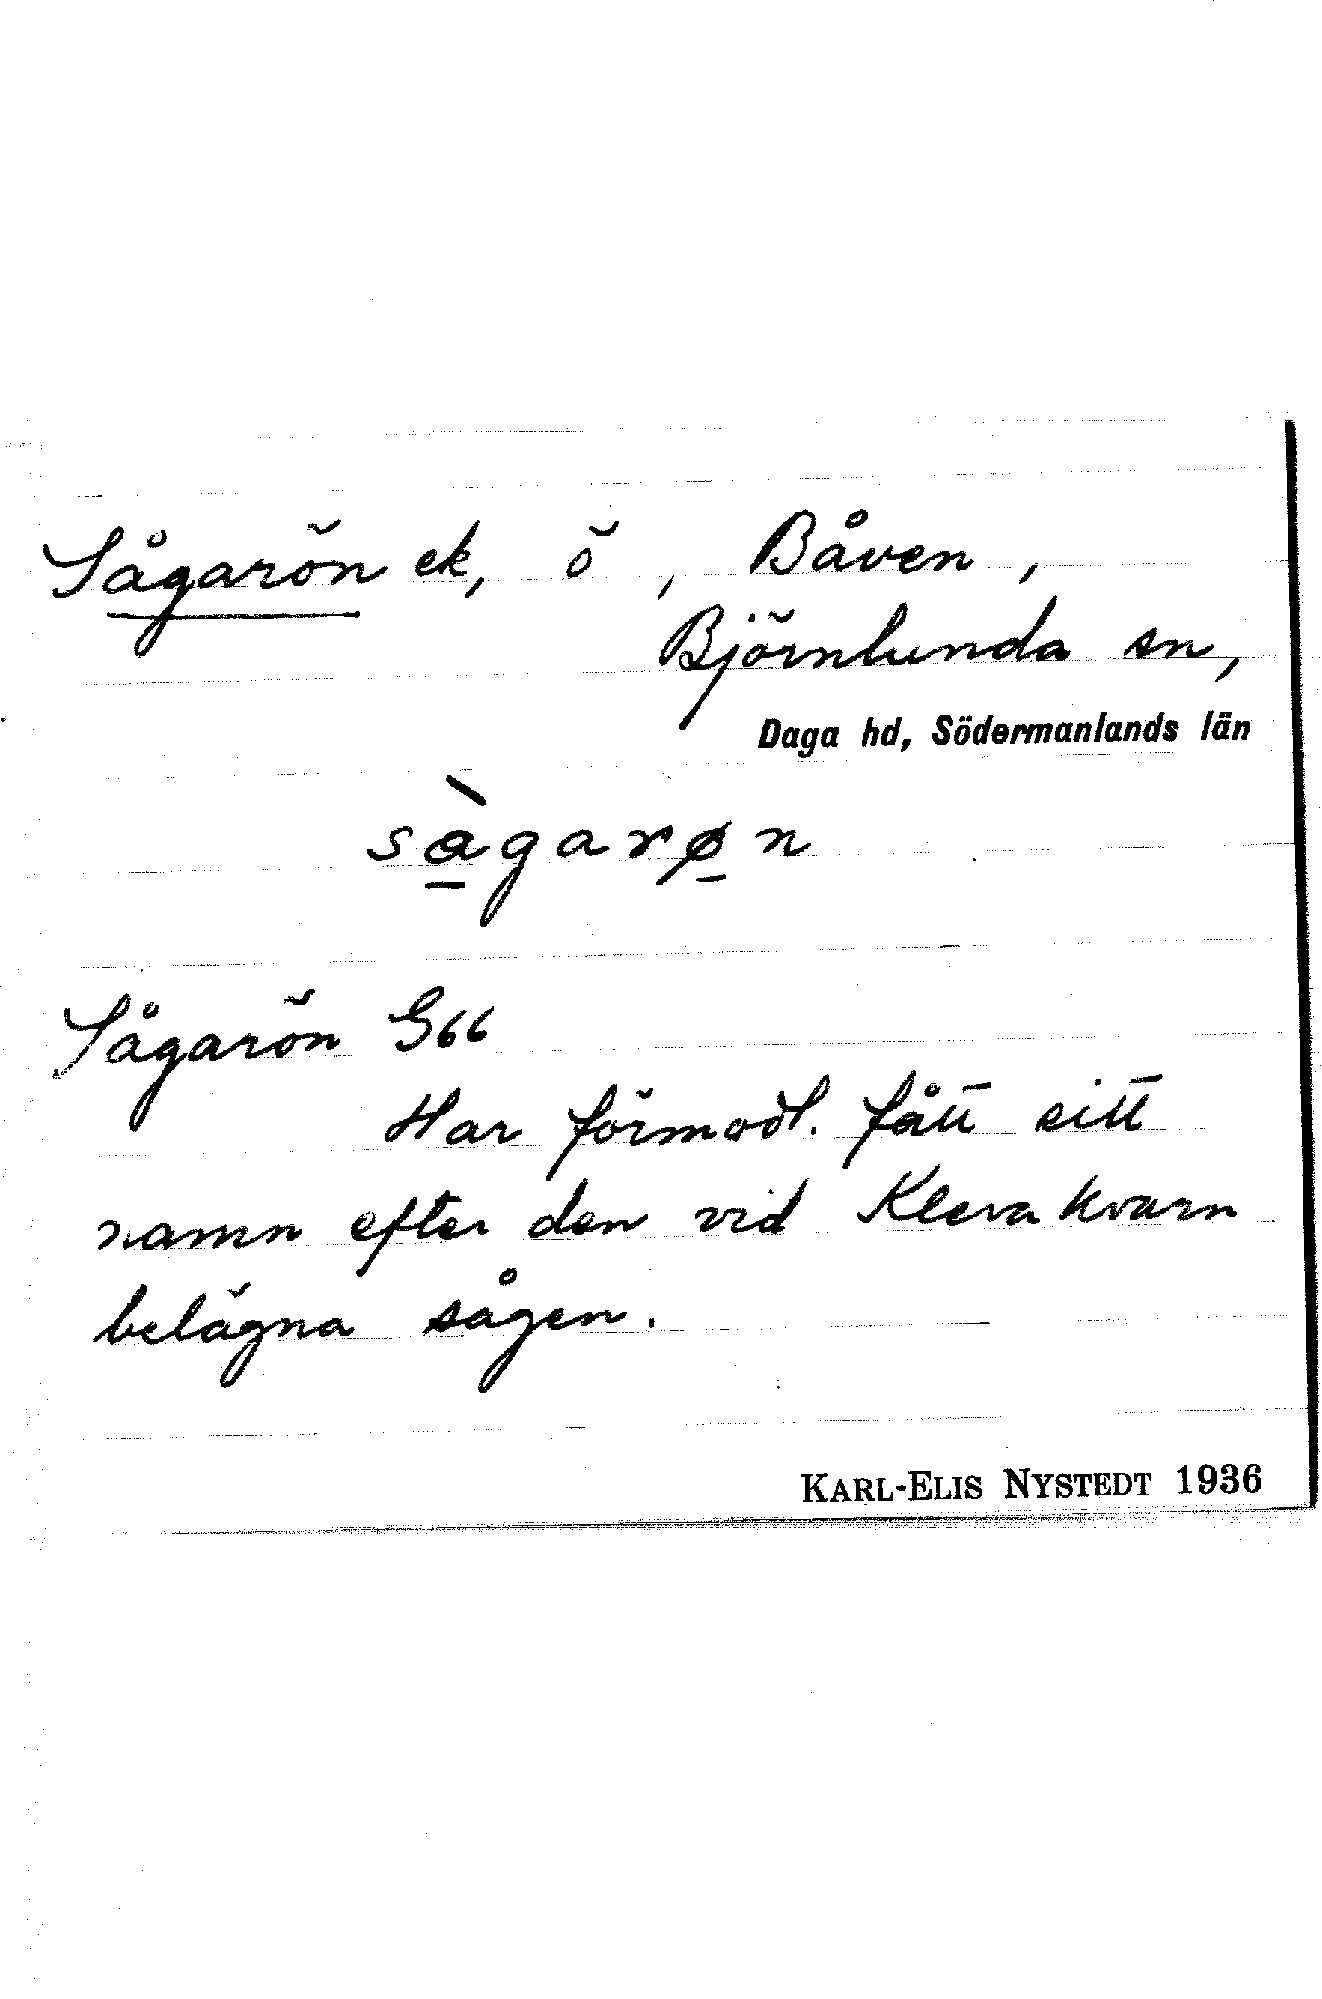 Sågarön ek, ö, Båven,
Björnlunda sn,
Daga hd, Södermanlands län
sàgarøn
Sågarön G66
Har förmodl. fått sitt
namn efter den vid Kleva kvarn
belägna sågen.
KARL-ELIS NYSTEDT 1936